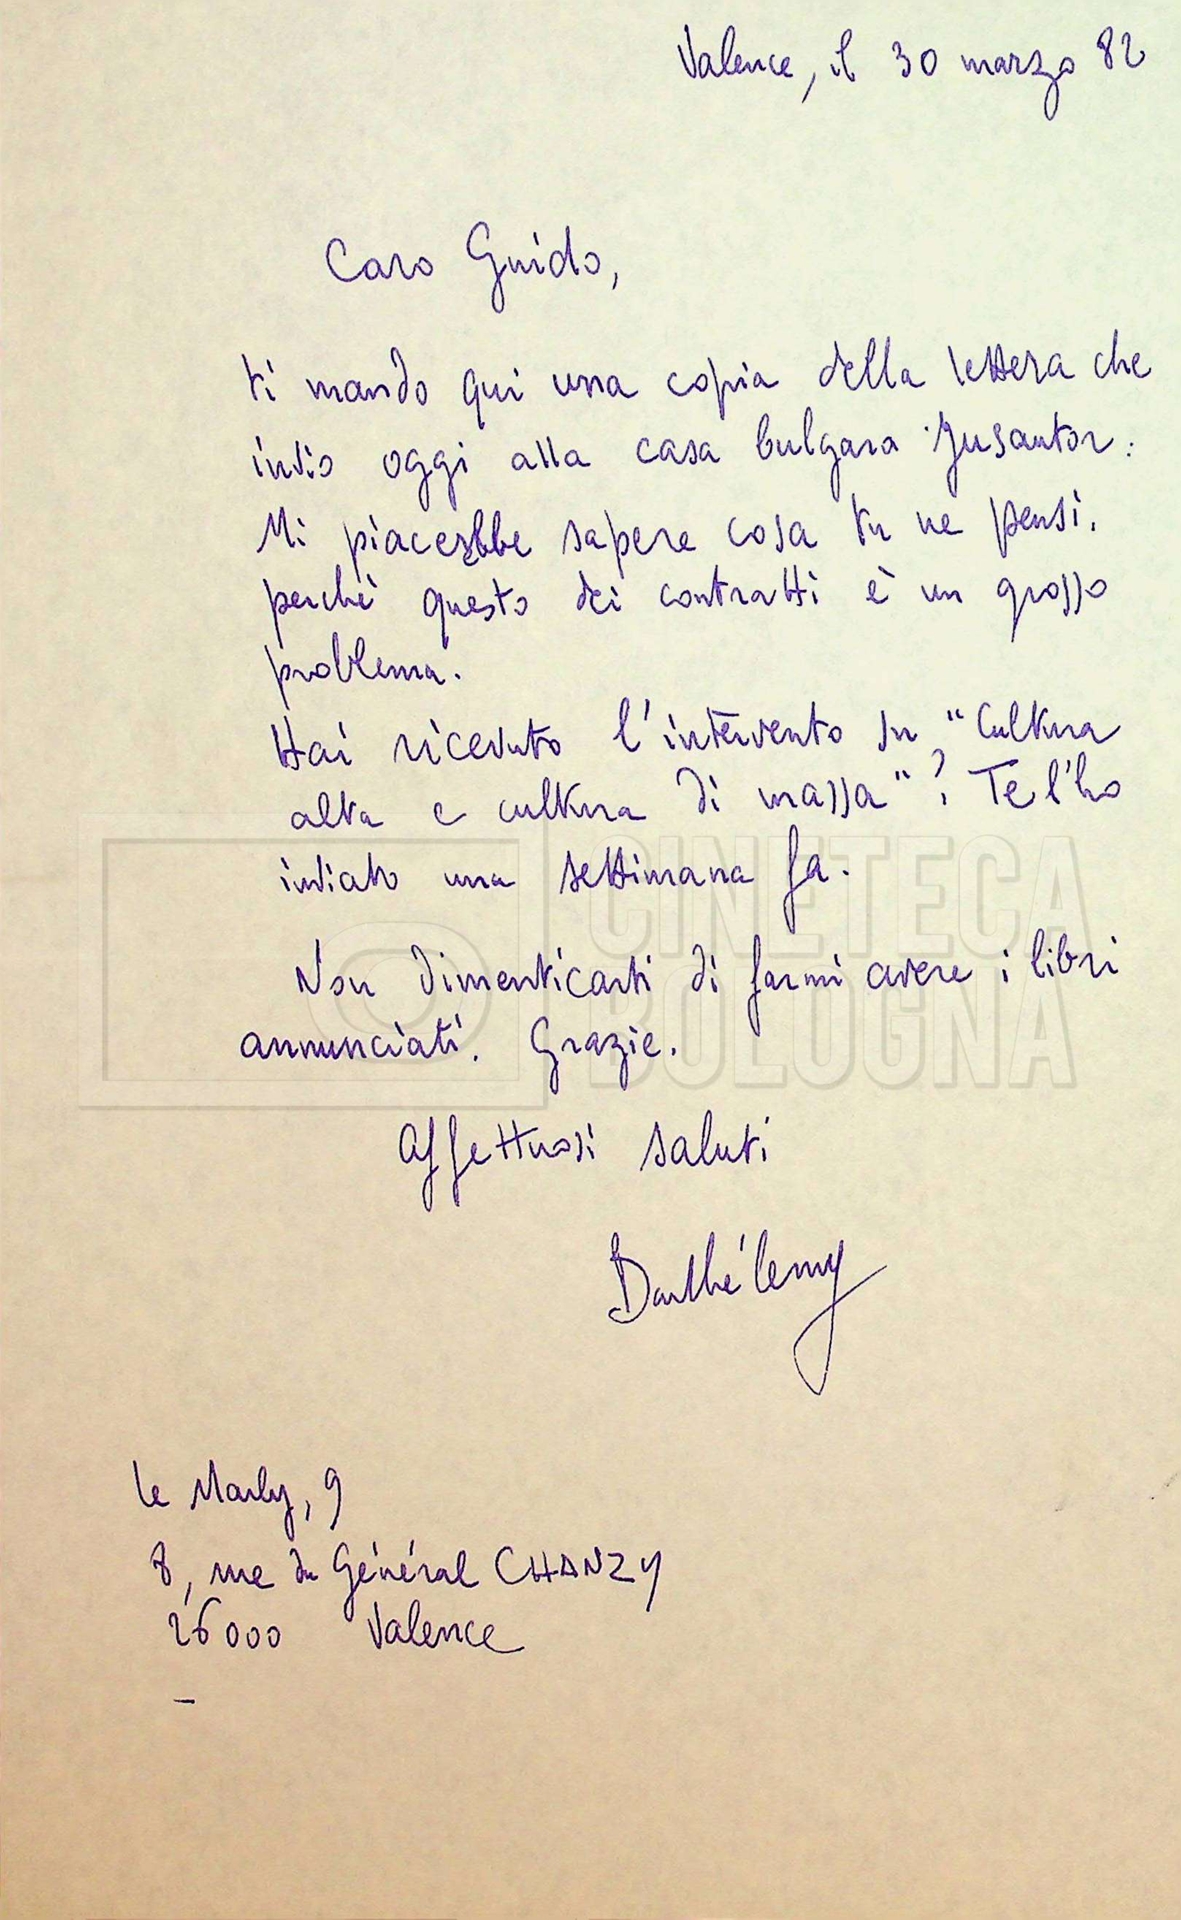 Valence, il 30 marzo 82
Caro Guido,
ti mando qui una copia della lettera che
invio oggi alla casa bulgara Jusautor.
Mi piacerebbe sapere cosa tu ne pensi,
perchè questo dei contratti è un grosso
problema.
Hai ricevuto l'intervento su "Cultura
alta e cultura di massa"? Te l'ho
inviato una settimana fa.
Non dimenticarti di farmi avere i libri
annunciati. Grazie.
Affettuosi saluti
Barthélemy
le Marly, 9
8, rue du Général CHANZY
26000 Valence
CINETECA
BOLOGNA